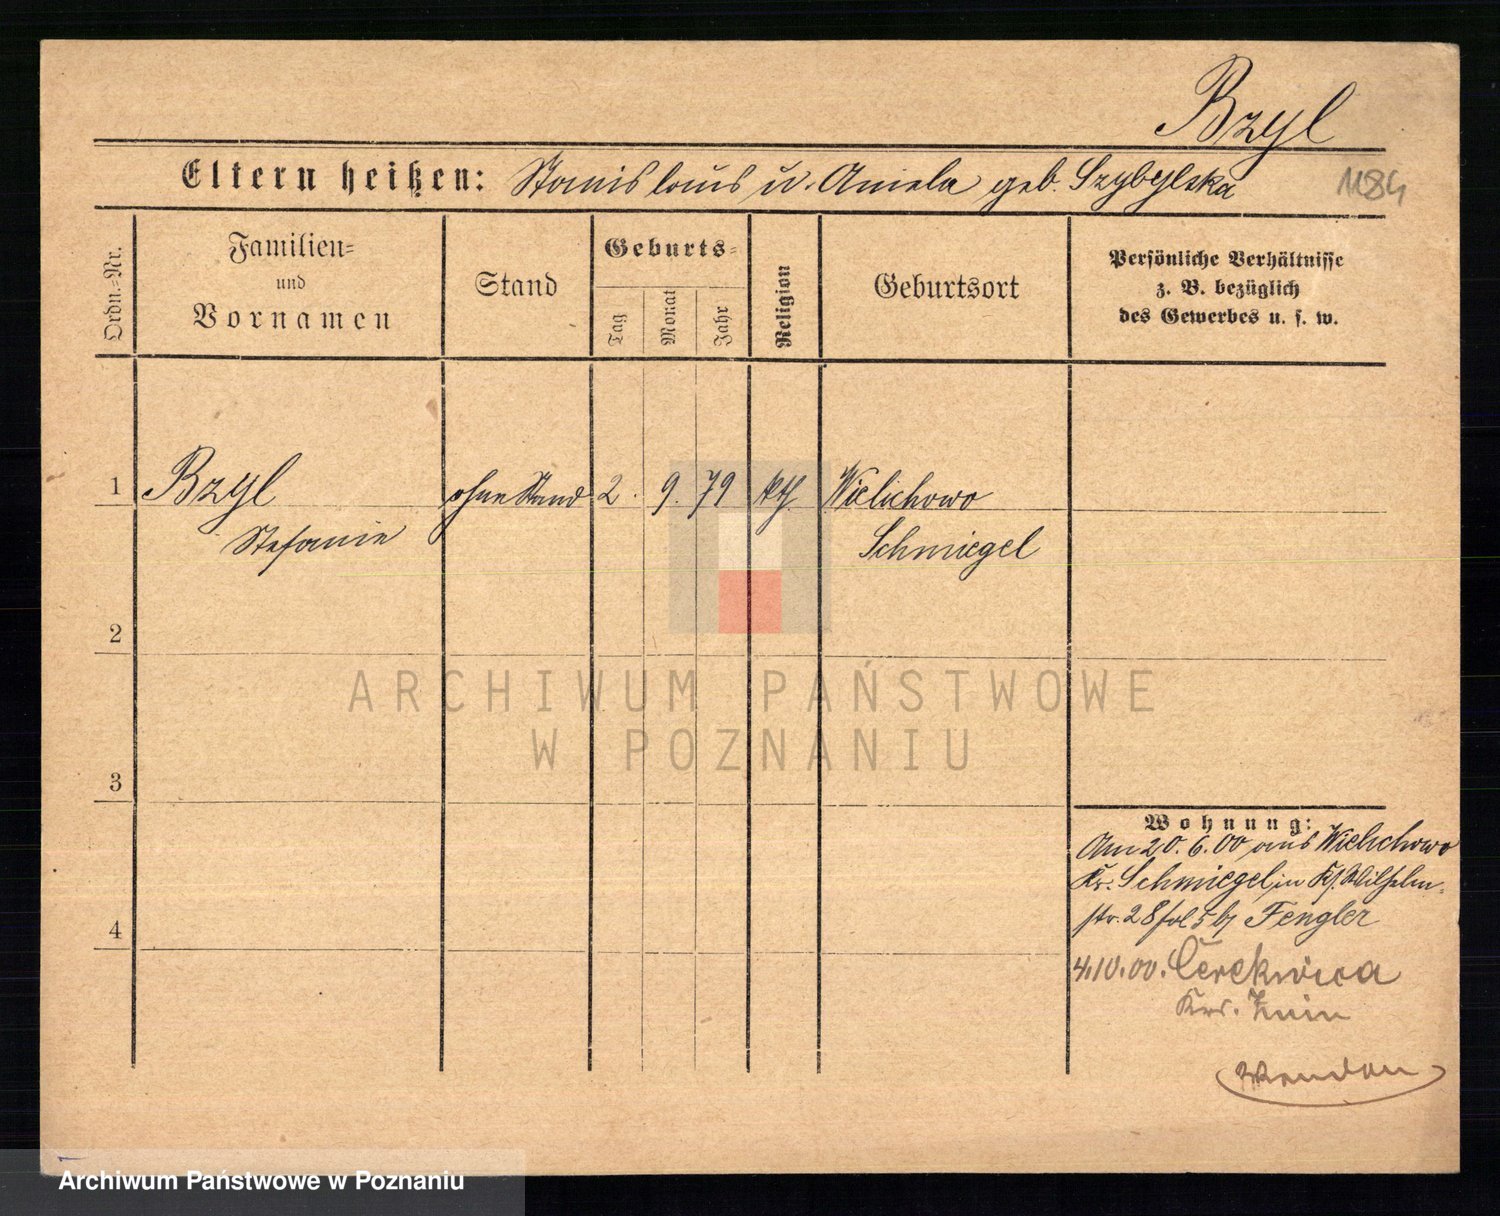 Bzyl
Eltern heißen: Stanislaus u. Aniela geb. Szybylska
1184
Ordn.-Nr.
Familien-
und
Vornamen
Stand
Geburts-
Tag
Monat
Jahr
Religion
Geburtsort
Persönliche Verhältnisse
z. B. bezüglich
des Gewerbes u. s. w.
1 Bzyl ohne Stand 2. 9. 79 kth. Wielichowo
Stefanie Schmiegel
2
ARCHIWUM PAŃSTWOWE
W POZNANIU
3
Wohnung:
Am 20.6.00 aus Wielichowo
Kr. Schmiegel in Wilhelm-
str. 28 b/ Fengler
4
4.10.00. Cerekwica
Krs. Znin
Archiwum Państwowe w Poznaniu